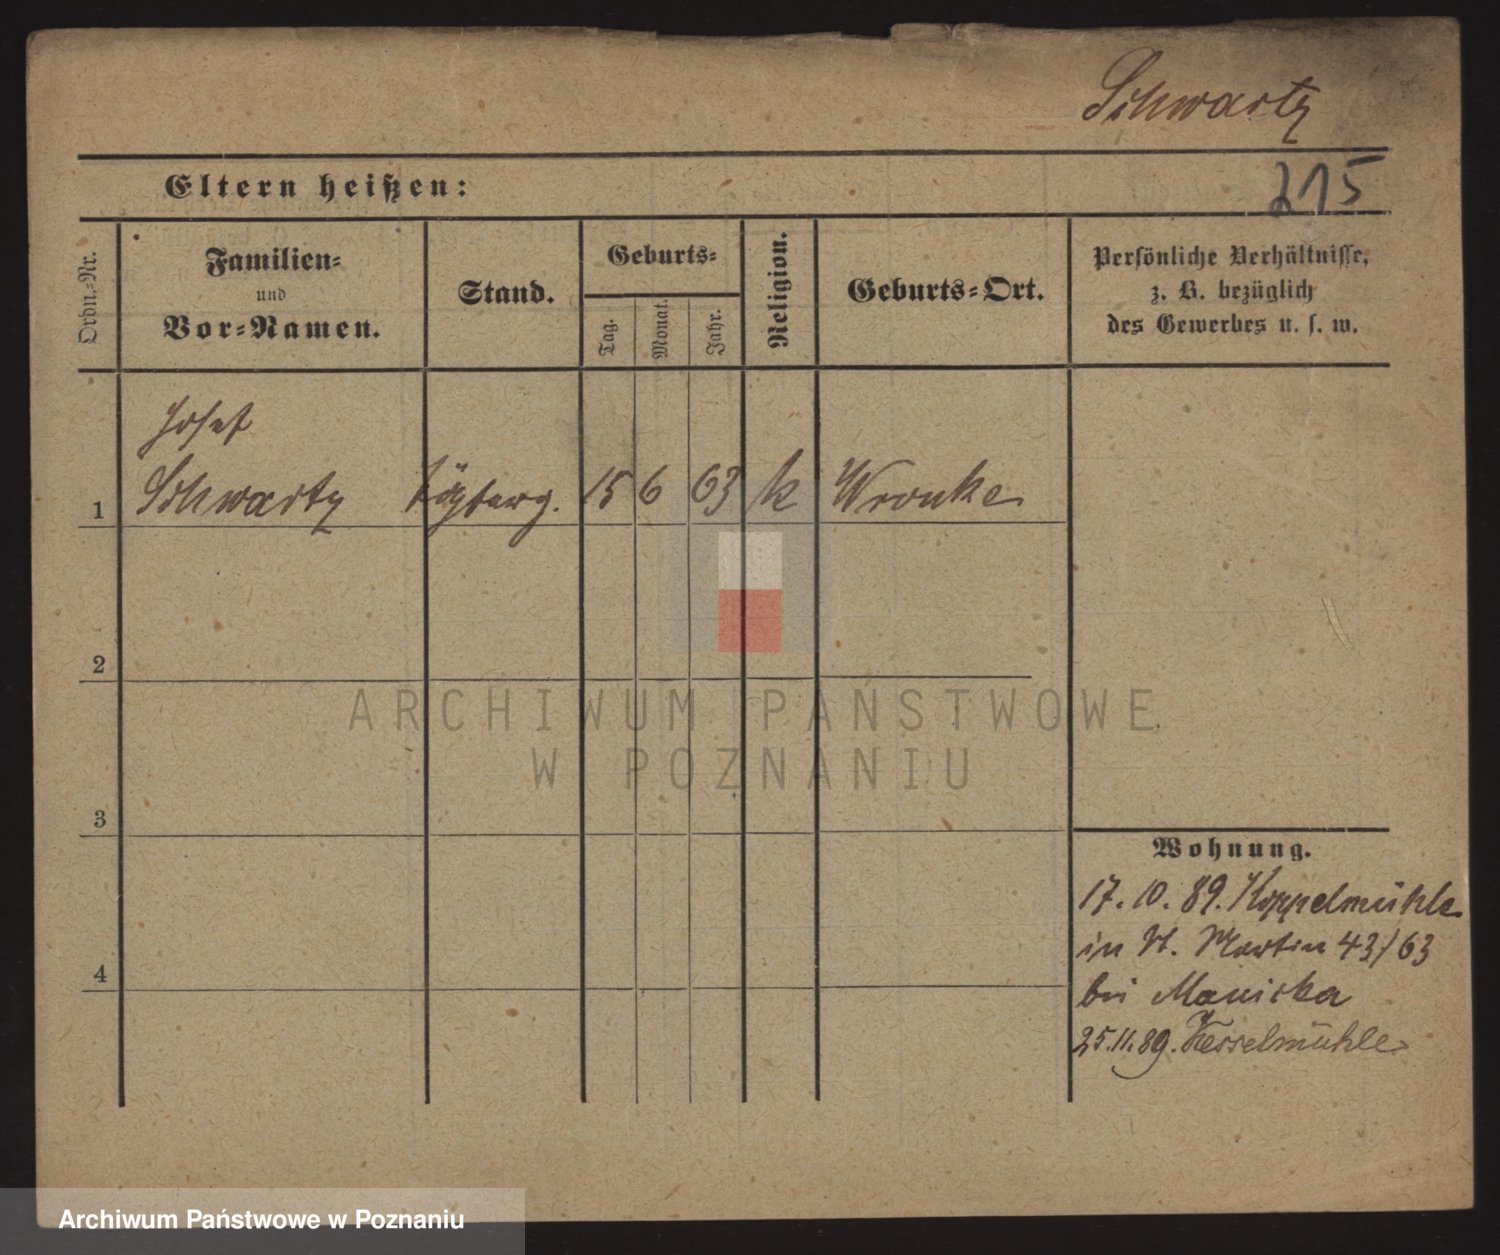 Schwartz
Eltern heißen:
215
Ordn.-Nr.
Familien-
und
Vor-Namen.
Stand.
Geburts-
Tag.
Monat.
Jahr.
Religion.
Geburts-Ort.
Persönliche Verhältnisse,
z. B. bezüglich
des Gewerbes u. s. w.
Josef
1 Schwartz 15 6 63 k Wronke
2
ARCHIWUM PAŃSTWOWE
W POZNANIU
3
Wohnung.
17. 10. 89. Koppelmühle
in St. Martin 43/63
bei
4
25.11.89. Kesselmühle
Archiwum Państwowe w Poznaniu